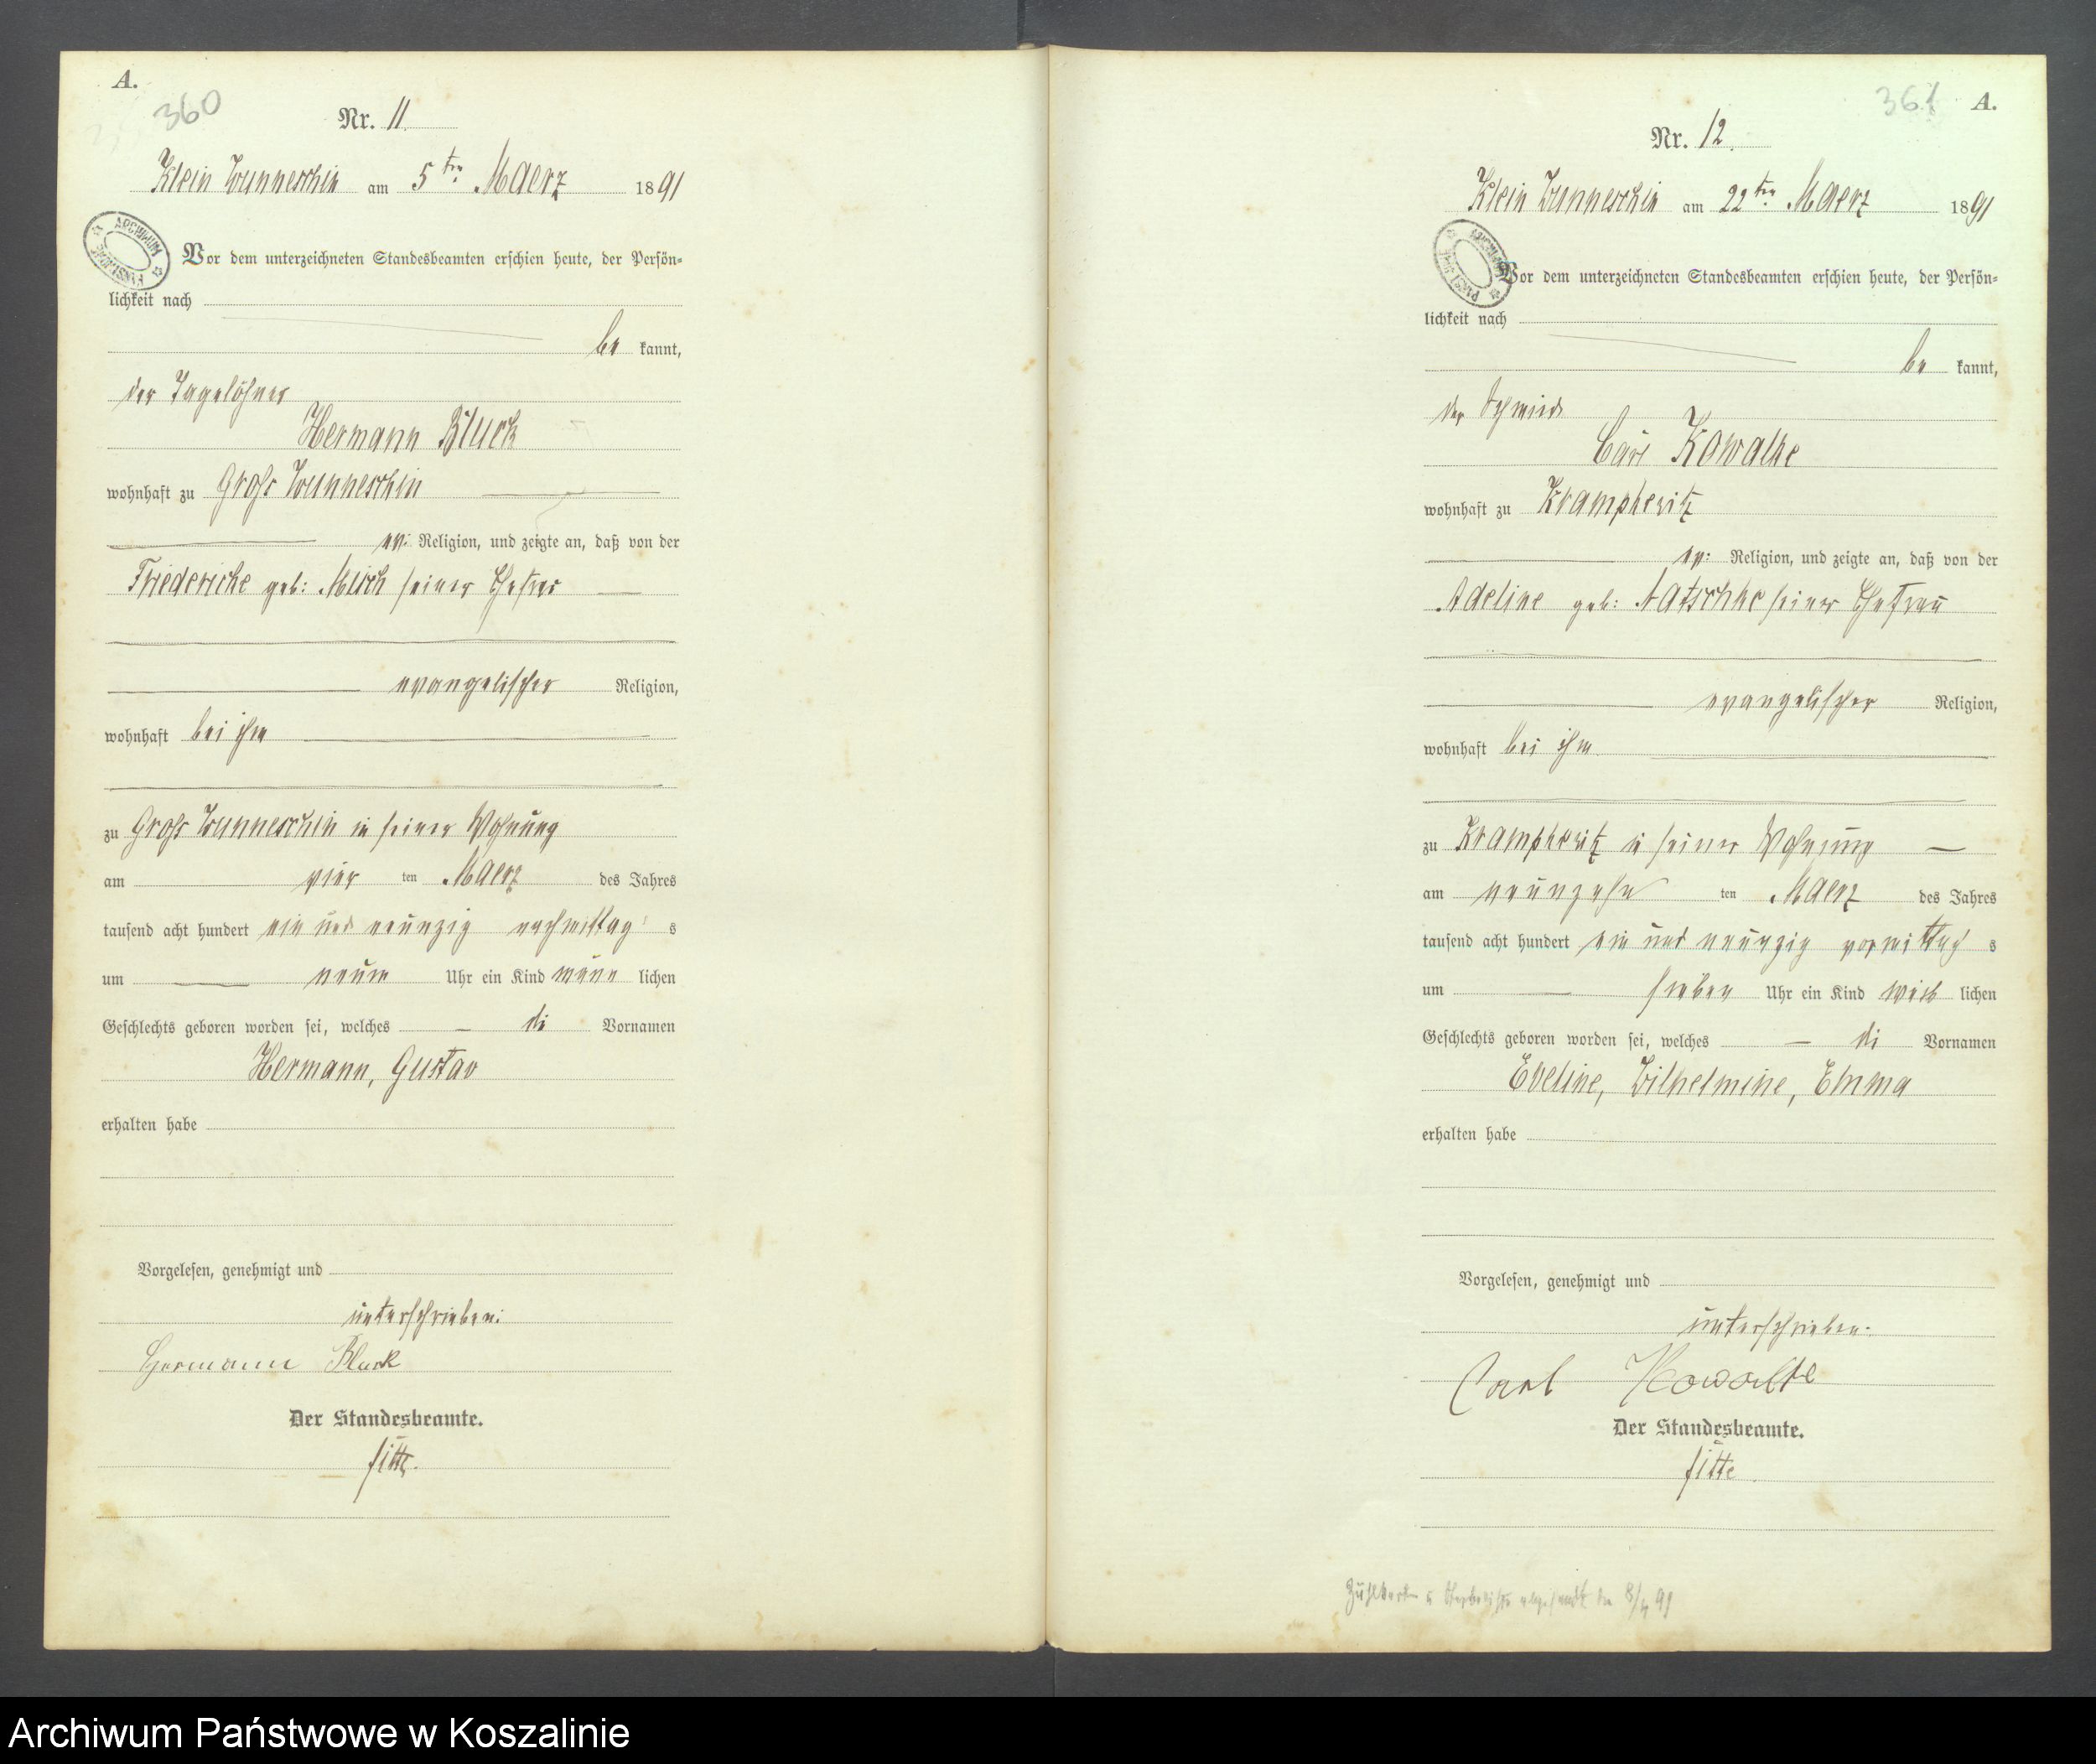 A.
360
Nr. 11.
Klein Wunneschin am 5ten Maerz 1891
ARCHIWUM
Vor dem unterzeichneten Standesbeamten erschien heute, der Persön-
lichkeit nach
be kannt,
der Tagelöhner
Hermann Bluck
wohnhaft zu Gross Wunneschin
ev: Religion, und zeigte an, daß von der
Friedericke geb: Misch seiner Ehefrau
evangelischer Religion,
wohnhaft bei ihm
zu Gross Wunneschin in seiner Wohnung
am vier ten Maerz des Jahres
tausend acht hundert ein und neunzig nachmittag s
um neun Uhr ein Kind männ lichen
Geschlechts geboren worden sei, welches die Vornamen
Hermann, Gustav
erhalten habe
Vorgelesen, genehmigt und
unterschrieben:
Hermann Bluck
Der Standesbeamte.
Fitte.
361 A.
Nr. 12.
Klein Wunneschin am 22ten Maerz 1891
Vor dem unterzeichneten Standesbeamten erschien heute, der Persön-
lichkeit nach
be kannt,
der Schmied
Carl Kowalke
wohnhaft zu Krampkewitz
ev: Religion, und zeigte an, daß von der
Adeline geb: Natschke seiner Ehefrau
evangelischer Religion,
wohnhaft bei ihm
zu Krampkewitz in seiner Wohnung
am neunzehn ten Maerz des Jahres
tausend acht hundert ein und neunzig vormittag s
um sieben Uhr ein Kind weib lichen
Geschlechts geboren worden sei, welches die Vornamen
Eveline, Wilhelmine, Emma
erhalten habe
Vorgelesen, genehmigt und
unterschrieben:
Carl Kowalke
Der Standesbeamte.
Fitte
Zählkarten u abgesandt den 8/4 91
Archiwum Państwowe w Koszalinie